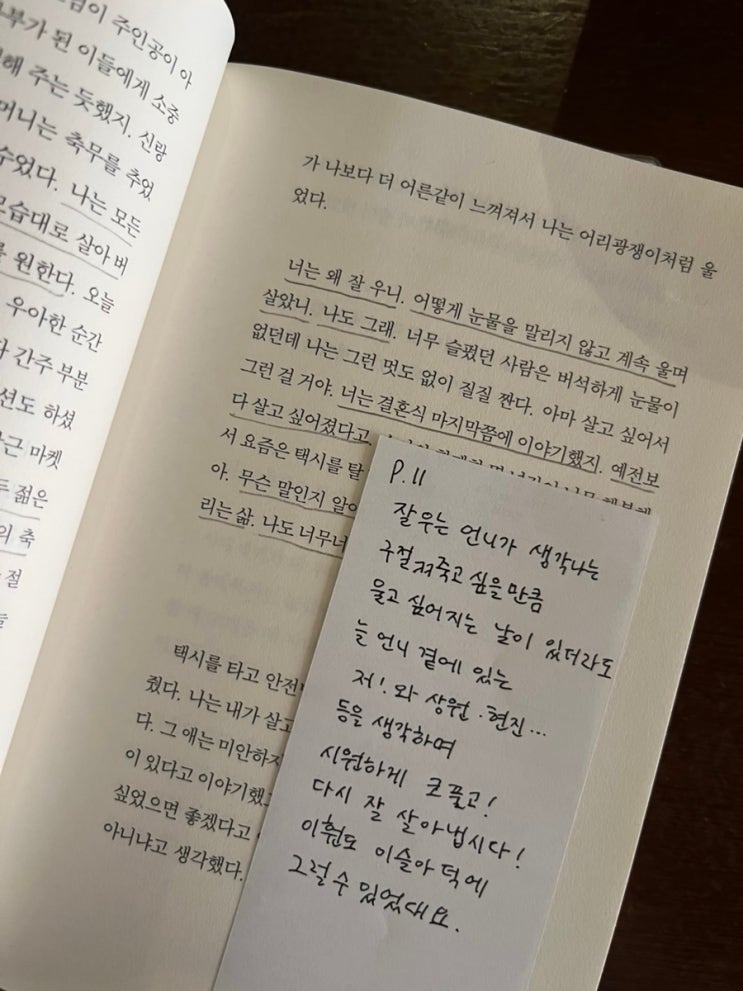 주인공이 아
부가 된 이들에게 소중
해 주는 듯했지. 신랑
머니는 축무를 추었
나는 모든
모습대로 살아 버
를 원한다. 오늘
우아한 순간
간주 부분
션도 하셨
근 마켓
젊은
의 축
절
가 나보다 더 어른같이 느껴져서 나는 어리광쟁이처럼 울
었다.
너는 왜 잘 우니. 어떻게 눈물을 말리지 않고 계속 울며
살았니. 나도 그래. 너무 슬펐던 사람은 버석하게 눈물이
없던데 나는 그런 멋도 없이 질질 짠다. 아마 살고 싶어서
그런 걸 거야. 너는 결혼식 마지막쯤에 이야기했지. 예전보
다 살고 싶어졌다고
서 요즘은 택시를 탈
아. 무슨 말인지 알아
리는 삶. 나도 너무너
택시를 타고 안전
줬다. 나는 내가 살고
다. 그 애는 미안하지
이 있다고 이야기했
싶었으면 좋겠다고
아니냐고 생각했다.
P.11
잘 우는 언니가 생각나는
구절 죽고 싶을 만큼
울고 싶어지는 날이 있더라도
늘 언니 곁에 있는
저! 와 상원 · 현진...
등을 생각하며
시원하게 코 풀고!
다시 잘 살아냅시다!
이훤도 이슬아 덕에
그럴 수 있었대요.